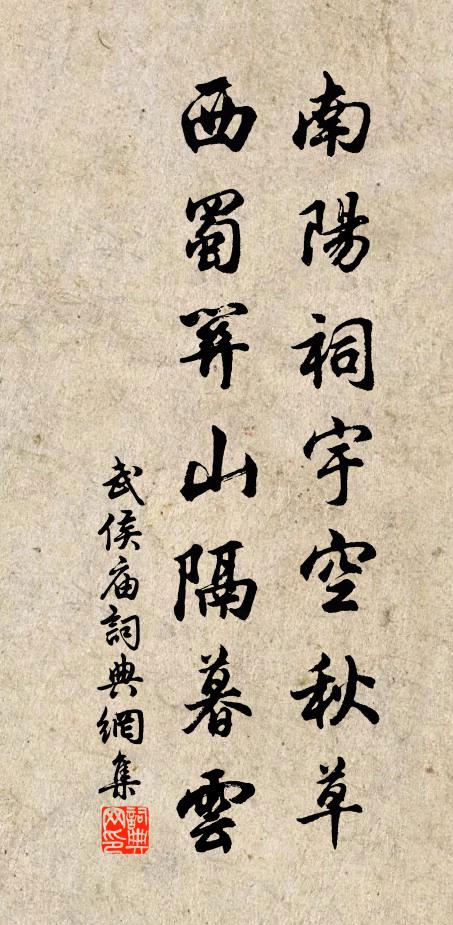 南陽祠宇空秋草
西蜀關山隔暮雲
武侯庙詞典網集
詞典
网印